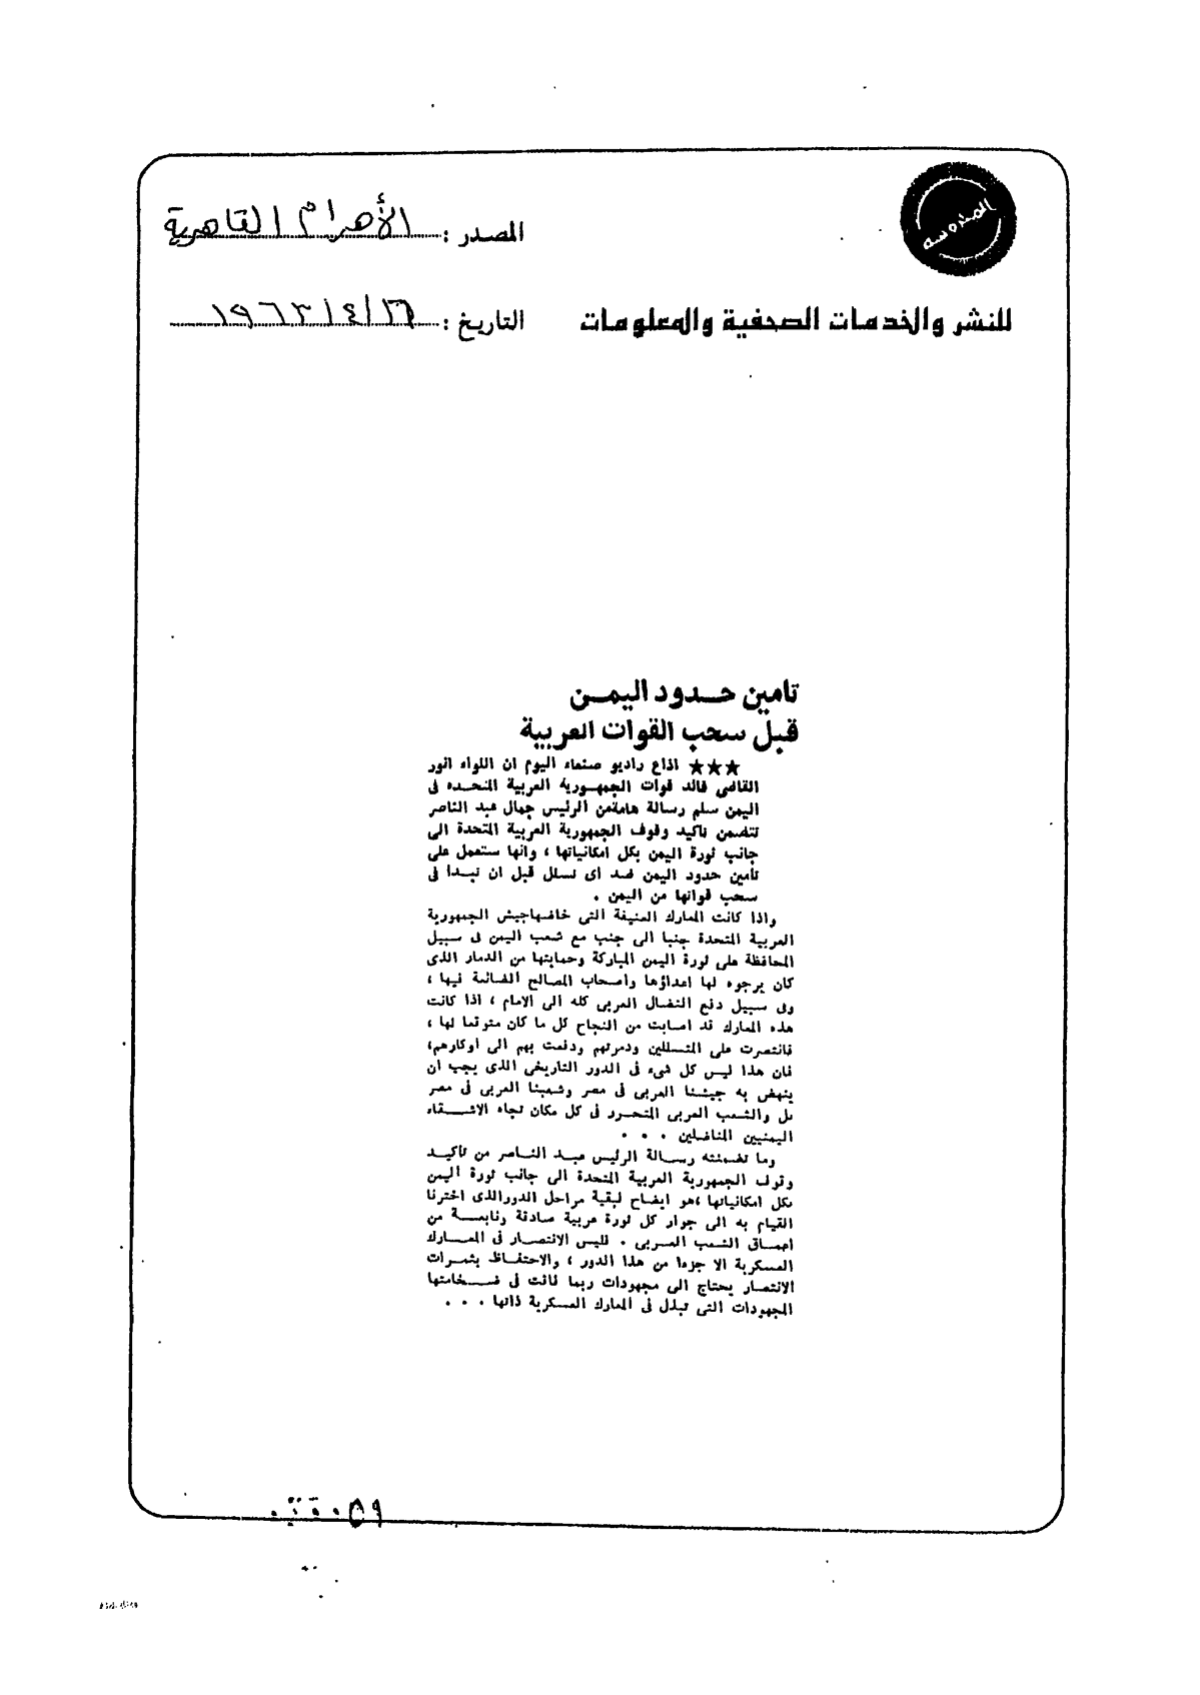 المصدر : الأهرام القاهرية
للنشر والخدمات الصحفية والمعلومات
التاريخ : ٢٦ / ٤ / ١٩٦٣
تامين حـدود اليمـن
قبل سحب القوات العربية
★★★ اذاع راديو صنعاء اليوم ان اللواء انور
القاضى قائد قوات الجمهورية العربية المتحـده فى
اليمن سلم رسالة هامةمن الرئيس جمال عبد الناصر
تتضمن تاكيد وقوف الجمهورية العربية المتحدة الى
جانب ثورة اليمن بكل امكانياتها ، وانها ستعمل على
تأمين حدود اليمن ضـد اى تسلل قبل ان تبـدا فى
سحب قواتها من اليمن .
واذا كانت المعارك العنيفة التى خاضهاجيش الجمهورية
العربية المتحدة جنبا الى جنب مع شعب اليمن فى سبيل
المحافظة على ثورة اليمن المباركة وحمايتها من الدمار الذى
كان يرجوه لها اعداؤها وأصحاب المصالح الضائعة فيها ،
وفى سبيل دفع النضال العربى كله الى الامام ، اذا كانت
هذه المعارك قد اصابت من النجاح كل ما كان متوقعا لها ،
فانتصرت على المتسللين ودمرتهم ودفعت بهم الى أوكارهم،
فان هذا ليس كل شىء فى الدور التاريخى الذى يجب ان
ينهض به جيشنا العربى فى مصر وشعبنا العربى فى مصر
بل والشعب العربى المتحرر فى كل مكان تجاه الاشـقاء
اليمنيين المناضلين . . .
وما تضمنته رسـالة الرئيس عبـد الناصر من تأكيـد
وقوف الجمهورية العربية المتحدة الى جانب ثورة اليمن
بكل امكانياتها ،هو ايضاح لبقية مراحل الدورالذى اخترنا
القيام به الى جوار كل ثورة عربية صادقة ونابعـة من
اعماق الشعب العـربى . فليس الانتصار فى المعـارك
العسكرية الا جزءا من هذا الدور ، والاحتفـاظ بثمـرات
الانتصار يحتاج الى مجهودات ربما فاقت فى ضـخامتها
المجهودات التى تبذل فى المعارك العسكرية ذاتها . . .